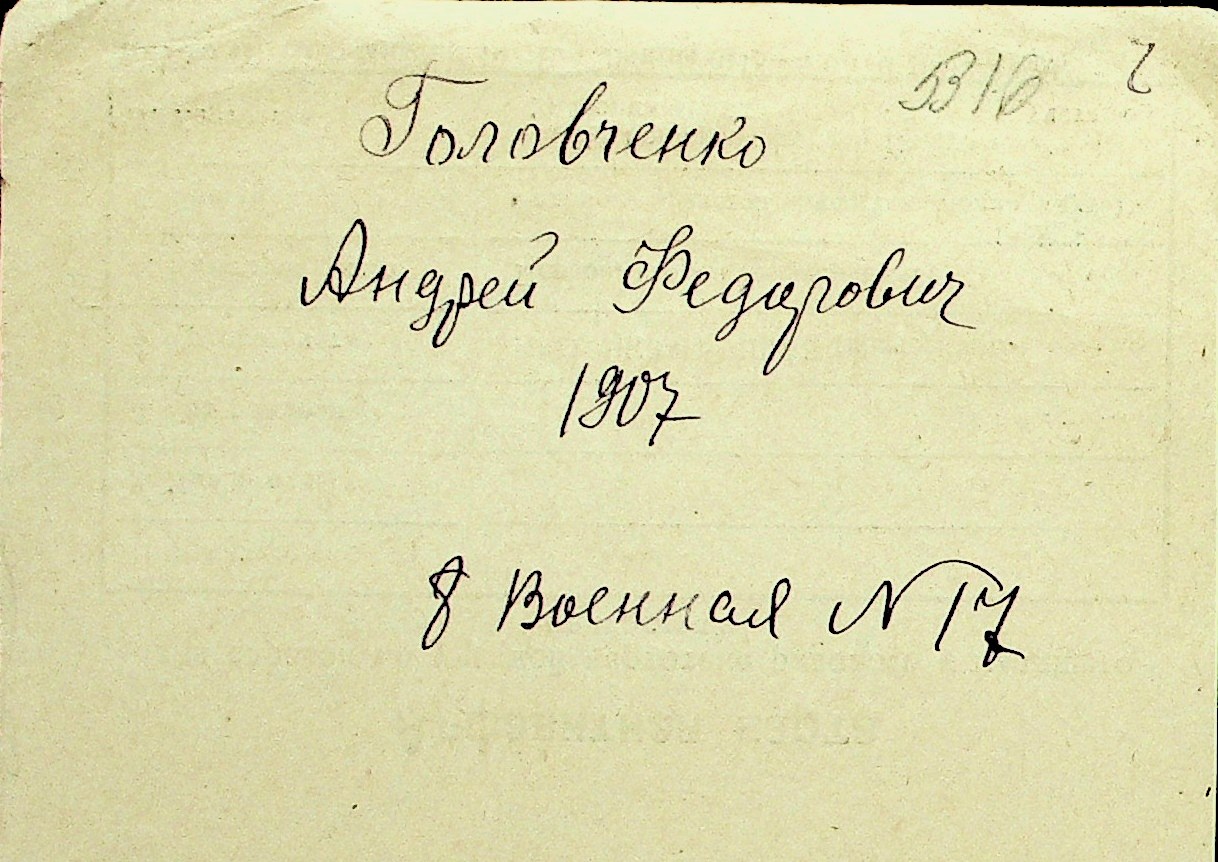 Головченко
Андрей Федорович
1907
8 Военная N 17